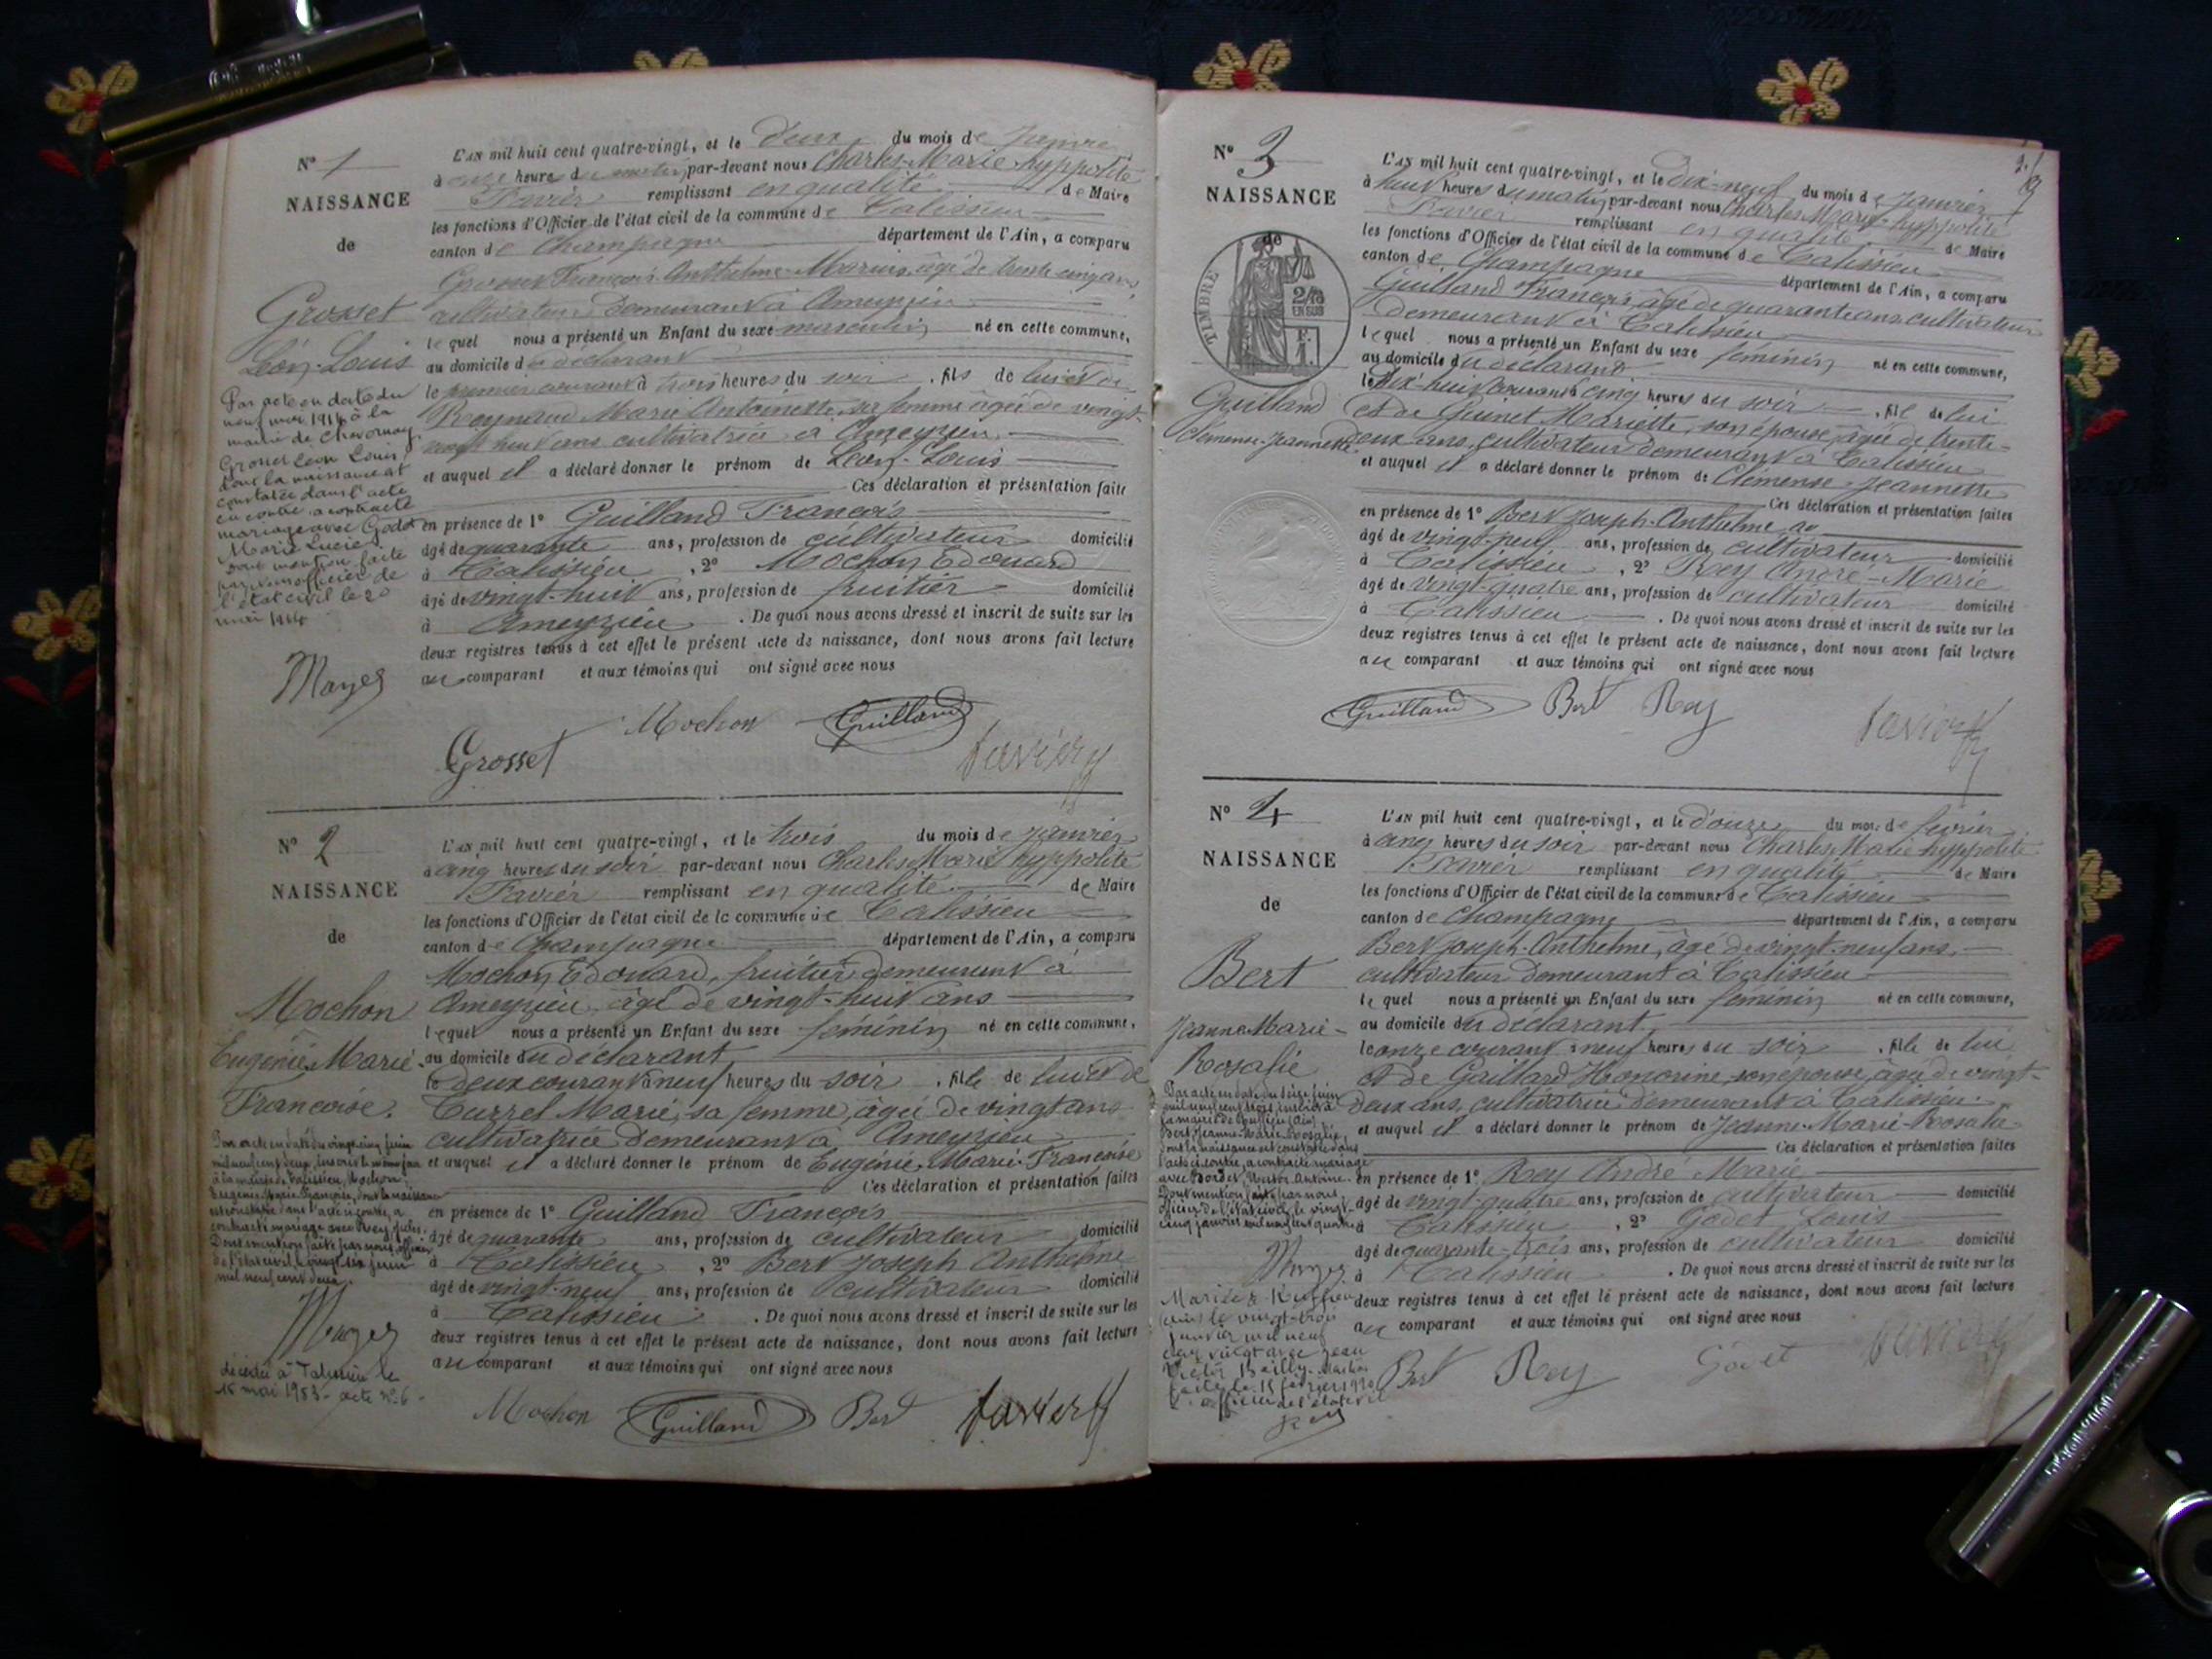 N° 1
NAISSANCE
de
Grosset
Léon-Louis
Par acte en date du
neuf mai 1914 à la
mairie de
Grosset Léon Louis
dont la naissance est
constatée dans l'acte
ci contre a contracté
mariage avec Godet
Marie Lucie
dont mention faite
par nous officier de
l'état civil le 20
mai 1914
L'AN mil huit cent quatre-vingt, et le deux du mois de Janvier
à heure du matin par-devant nous Charles-Marie-hyppolite
Favier remplissant en qualité de Maire
les fonctions d'Officier de l'état civil de la commune de Talissieu
canton de Champagne département de l'Ain, a comparu
Grosset François Anthelme Marius, âgé de trente cinq ans,
cultivateur, demeurant à Ameyzieu
lequel nous a présenté un Enfant du sexe masculin né en cette commune,
au domicile du déclarant
le premier courant à trois heures du soir, fils de lui et de
Reynaud Marie Antoinette, sa femme âgée de vingt-
huit ans cultivatrice à Ameyzieu
et auquel il a déclaré donner le prénom de Léon-Louis
Ces déclaration et présentation faites
en présence de 1° Guilland François
âgé de quarante ans, profession de cultivateur domicilié
à Talissieu, 2° Mochon Edouard
âgé de vingt-huit ans, profession de fruitier domicilié
à Ameyzieu. De quoi nous avons dressé et inscrit de suite sur les
deux registres tenus à cet effet le présent acte de naissance, dont nous avons fait lecture
au comparant et aux témoins qui ont signé avec nous
Grosset Mochon Guilland Favier
N° 2
NAISSANCE
de
Mochon
Eugénie-Marie
Françoise.
Par acte en date du vingt cinq juin
mil neuf cent deux, inscrit le même jour
à la mairie de Talissieu, Mochon
Eugénie Marie Françoise, dont la naissance
est constatée dans l'acte ci-contre, a
contracté mariage avec Rey Jules.
Dont mention faite par nous, officier
de l'état civil, le vingt six juin
mil neuf cent deux.
décédée à Talissieu le
15 mai 1953 - acte n° 6 -
L'AN mil huit cent quatre-vingt, et le trois du mois de Janvier
à cinq heures du soir par-devant nous Charles Marie hyppolite
Favier remplissant en qualité de Maire
les fonctions d'Officier de l'état civil de la commune de Talissieu
canton de Champagne département de l'Ain, a comparu
Mochon Edouard, fruitier, demeurant à
Ameyzieu, âgé de vingt-huit ans
lequel nous a présenté un Enfant du sexe féminin né en cette commune,
au domicile du déclarant,
le deux courant à neuf heures du soir, fille de lui et de
Marie, sa femme, âgée de vingt ans
cultivatrice demeurant à Ameyzieu
et auquel il a déclaré donner le prénom de Eugénie, Marie-Françoise
Ces déclaration et présentation faites
en présence de 1° Guilland François
âgé de quarante ans, profession de cultivateur domicilié
à Talissieu, 2° Bert Joseph Anthelme
âgé de vingt-neuf ans, profession de cultivateur domicilié
à Talissieu. De quoi nous avons dressé et inscrit de suite sur les
deux registres tenus à cet effet le présent acte de naissance, dont nous avons fait lecture
au comparant et aux témoins qui ont signé avec nous
Mochon Guilland Bert Favier
N° 3
NAISSANCE
de
TIMBRE
2/10
EN SUS
Guilland
Clémense-Jeannette
L'AN mil huit cent quatre-vingt, et le dix-neuf du mois de Janvier
à huit heures du matin par-devant nous Charles Marie-hyppolite
Favier remplissant en qualité de Maire
les fonctions d'Officier de l'état civil de la commune de Talissieu
canton de Champagne département de l'Ain, a comparu
Guilland François, âgé de quarante ans, cultivateur
demeurant à Talissieu
lequel nous a présenté un Enfant du sexe féminin né en cette commune,
au domicile du déclarant
le Dix-huit courant à cinq heures du soir, fille de lui
et de Guinet Mariette, son épouse, âgée de trente-
deux ans, cultivateur demeurant à Talissieu
et auquel il a déclaré donner le prénom de Clémense-Jeannette
Ces déclaration et présentation faites
en présence de 1° Bert Joseph-Anthelme
âgé de vingt-neuf ans, profession de cultivateur domicilié
à Talissieu, 2° Rey André-Marie
âgé de vingt-quatre ans, profession de cultivateur domicilié
à Talissieu. De quoi nous avons dressé et inscrit de suite sur les
deux registres tenus à cet effet le présent acte de naissance, dont nous avons fait lecture
au comparant et aux témoins qui ont signé avec nous
Guilland Bert Rey Favier
N° 4
NAISSANCE
de
Bert
Jeanne Marie-
Rosalie
Par acte en date du seize juin
mil neuf cent trois, inscrit à
la mairie de
Bert Jeanne-Marie-Rosalie,
dont la naissance est constatée dans
l'acte ci contre, a contracté mariage
avec Bordet, Victor Antoine.
Dont mention faite par nous,
officier de l'état civil, le vingt-
cinq janvier mil neuf cent quatre
Mariée à Ruffieu
le vingt-trois
janvier mil neuf
cent vingt avec Jean
Victor Bailly. Mention
faite le 15 février 1920
L'officier de l'état civil
Rey
L'AN mil huit cent quatre-vingt, et le douze du mois de février
à cinq heures du soir par-devant nous Charles Marie hyppolite
Favier remplissant en qualité de Maire
les fonctions d'Officier de l'état civil de la commune de Talissieu
canton de Champagne département de l'Ain, a comparu
Bert Joseph-Anthelme, âgé de vingt-neuf ans,
cultivateur demeurant à Talissieu
lequel nous a présenté un Enfant du sexe féminin né en cette commune,
au domicile du déclarant,
le onze courant à neuf heures du soir, fille de lui
et de Gaillard Honorine, son épouse, âgée de vingt-
deux ans, cultivatrice demeurant à Talissieu.
et auquel il a déclaré donner le prénom de Jeanne-Marie-Rosalie
Ces déclaration et présentation faites
en présence de 1° Rey André Marie
âgé de vingt-quatre ans, profession de cultivateur domicilié
à Talissieu, 2° Godet Louis
âgé de quarante-trois ans, profession de cultivateur domicilié
à Talissieu. De quoi nous avons dressé et inscrit de suite sur les
deux registres tenus à cet effet le présent acte de naissance, dont nous avons fait lecture
au comparant et aux témoins qui ont signé avec nous
Bert Rey Godet Favier